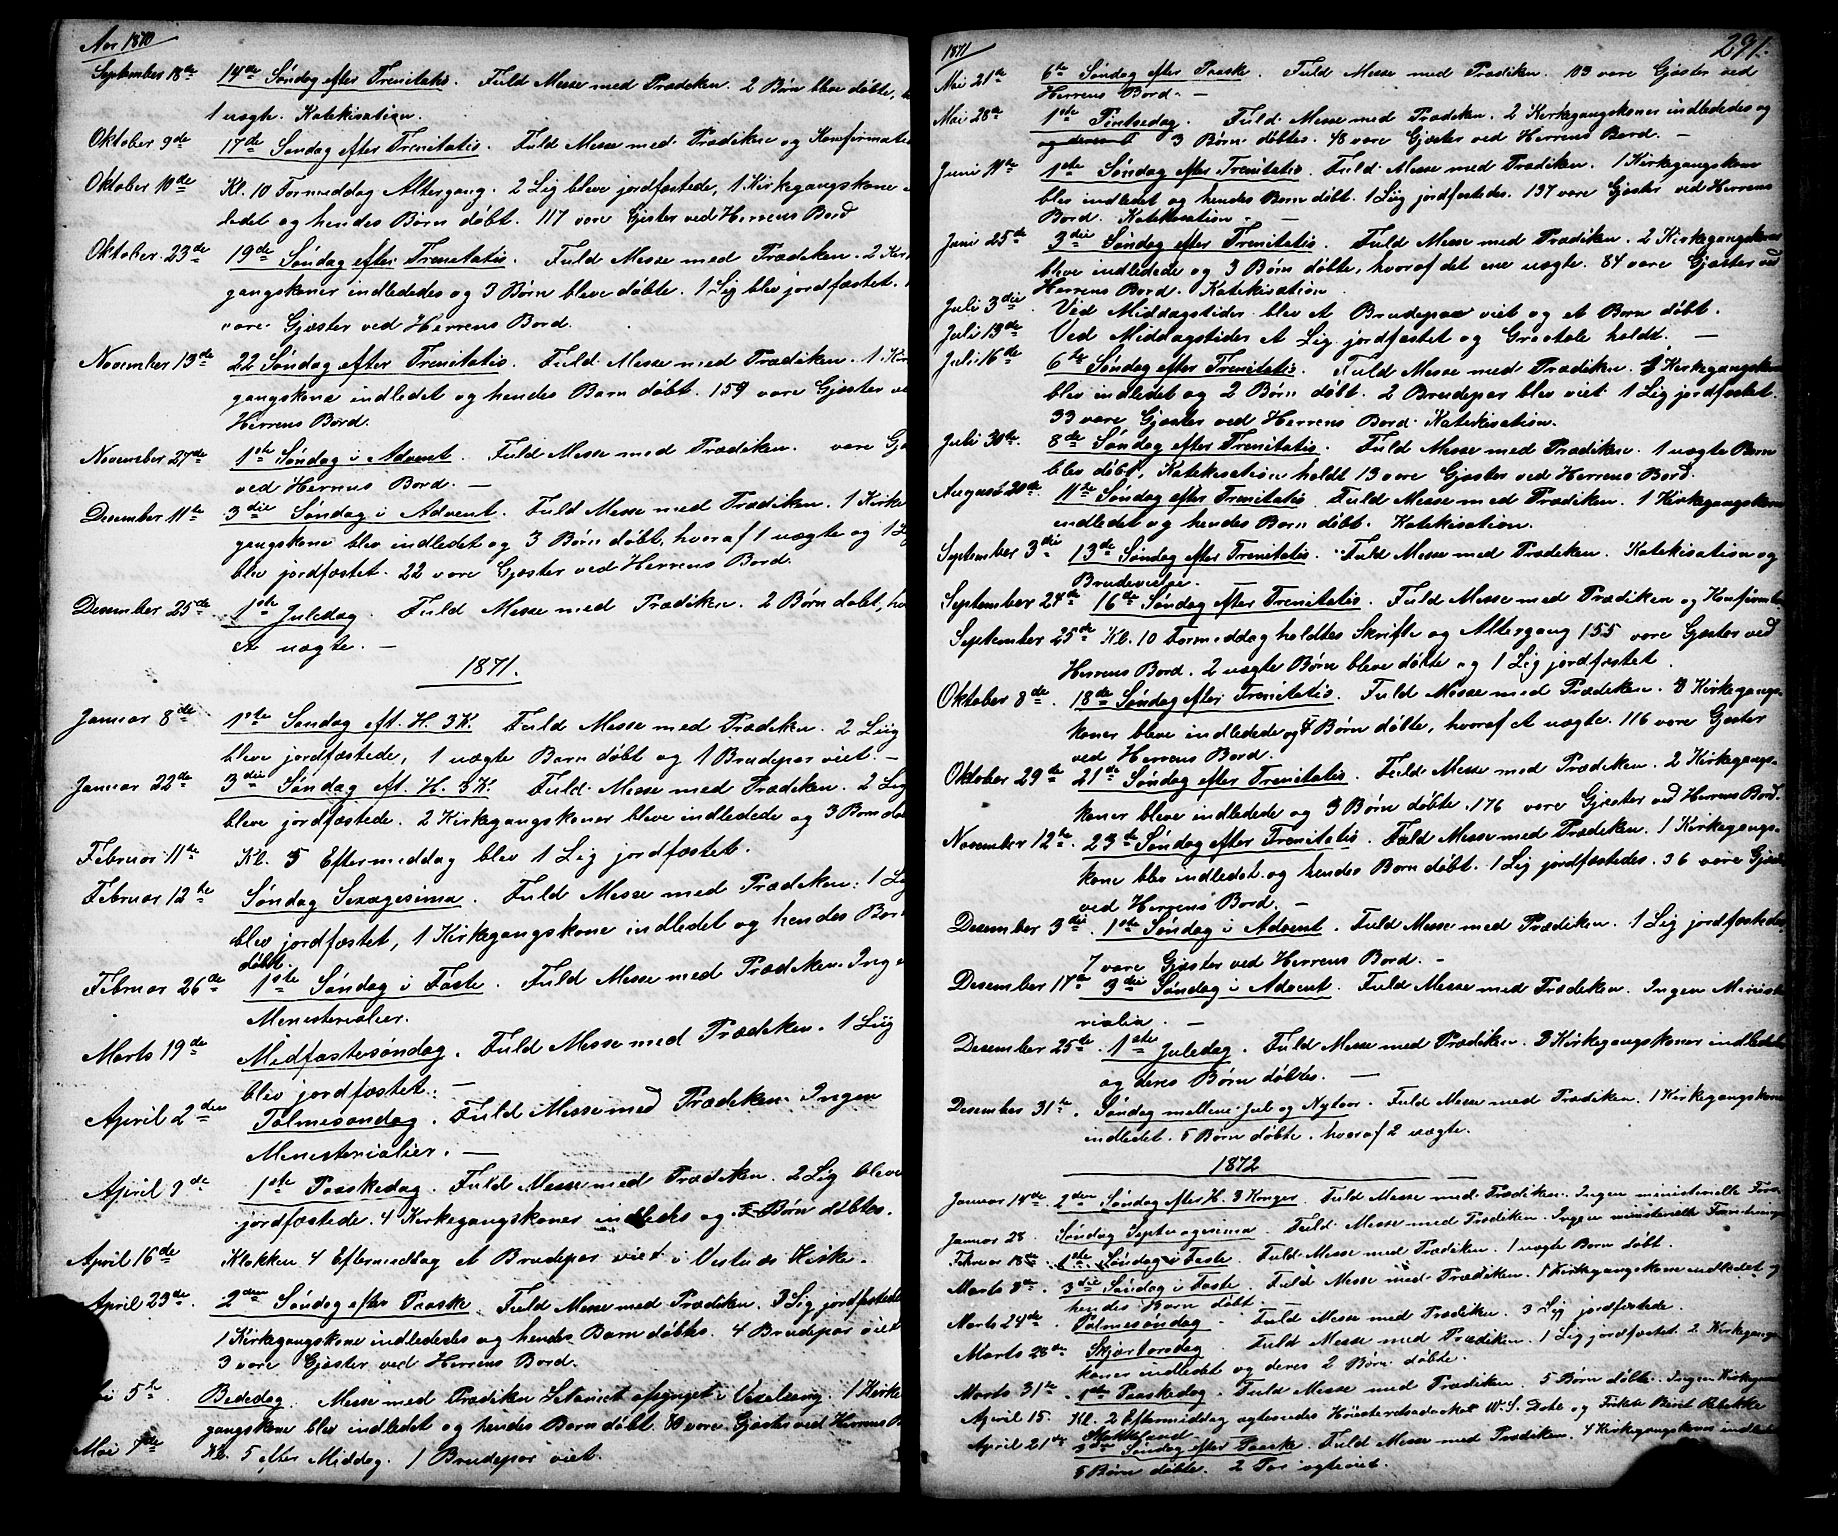 Aar 1870
September 18de 14de Søndag efter Trenitatis. Fuld Messe med Prædiken. 2 Børn bleve døbte,
1 uægte. Katekisation.
Oktober 9de 17de Søndag efter Trenitatis. Fuld Messe med Prædiken og Konfirmatio
Oktober 10de Kl. 10 Formiddag Altergang. 2 Lig bleve jordfæstede, 1 Kirkegangskone
ledet og hendes Børn døbt. 117 vare Gjæster ved Herrens Bord
Oktober 23de 19de Søndag efter Trenitatis. Fuld Messe med Prædiken. 2 Kir
gangskoner indlededes og 3 Børn bleve døbte. 1 Lig blev jordfæstet.
vare Gjæster ved Herrens Bord.
November 13de 22 Søndag efter Trenitatis. Fuld Messe med Prædiken. 1 Kir
gangskone indledet og hendes Barn døbt. 159 vare Gjæster ve
Herrens Bord.
November 27de 1ste Søndag i Advent. Fuld Messe med Prædiken. vare Gj
ved Herrens Bord. —
Desember 11te 3die Søndag i Advent. Fuld Messe med Prædiken. 1 Kirke
gangskone blev indledet og 3 Børn døbt, hvoraf 1 uægte og 1 Li
blev jordfæstet. 22 vare Gjæster ved Herrens Bord.
Desember 25de 1ste Juledag. Fuld Messe med Prædiken. 2 Børn døbt, hv
et uægte. —
1871.
Januar 8de 1ste Søndag eft. H. 3 K. Fuld Messe med Prædiken. 2 Liig
bleve jordfæstede, 1 uægte Barn døbt og 1 Brudepar viet. —
Januar 22de 3die Søndag eft. H. 3 K. Fuld Messe med Prædiken. 2 Lig
bleve jordfæstede. 2 Kirkegangskoner bleve indledede og 3 Børn dø
Februar 11te Kl. 5 Eftermiddag blev 1 Lig jordfæstet.
Februar 12te Søndag Sexagesima. Fuld Messe med Prædiken: 1 Lig
blev jordfæstet, 1 Kirkegangskone indledet og hendes Barn
døbt.
Februar 26de 1ste Søndag i Faste. Fuld Messe med Prædiken. Ingen
Menesterialier.
Marts 19de Midfastesøndag. Fuld Messe med Prædiken. 1 Liig
blev jordfæstet. —
April 2den Palmesøndag. Fuld Messe med Prædiken. Ingen
Menesterialier. —
April 9de 1ste Paaskedag. Fuld Messe med Prædiken. 2 Lig bleve
jordfæstede. 4 Kirkegangskoner indledes og Børn døbtes.
April 16de Klokken 4 Eftermiddag et Brudepar viet i Kirke.
April 23de. 2den Søndag efter Paaske. Fuld Messe med Prædiken. 3 Lig jordfæstede
1 Kirkegangskone indlededes og hendes Barn døbtes. 4 Brudepar viet
3 vare Gjæster ved Herrens Bord.
5te Bededag. Messe med Prædiken Litaniet afsynget i Vexelsang. 1 Kirke
gangskone blev indledet og hendes Barn døbt. 80 vare Gjæster ved Herrens B
Mai 7de Kl. 5 efter Middag. 1 Brudepar viet.
1871
291.
Mai 21de 6te Søndag efter Paaske. Fuld Messe med Prædiken. 103 vare Gjæster ved
Herrens Bord. —
Mai 28de 1ste Pintsedag. Fuld Messe med Prædiken. 2 Kirkegangskoner indlededes og
3 Børn døbtes. 48 vare Gjæster ved Herrens Bord. —
Juni 11te 1ste Søndag efter Trenitatis. Fuld Messe med Prædiken. 1 Kirkegangskone
blev indledet og hendes Barn døbt. 1 Liig jordfæstedes. 137 vare Gjæster ved Herrens
Bord. Katekisation. —
Juni 25de 3die Søndag efter Trenitatis. Fuld Messe med Prædiken. 2 Kirkegangskoner
bleve indledede og 3 Børn døbte, hvoraf det ene uægte. 84 vare Gjæster ved
Herrens Bord. Katekisation.
Juli 3die Ved Middagstider blev et Brudepar viet og et Barn døbt.
Juli 13de Ved Middagstider et Lig jordfæstet og Gravtale holdt. —
Juli 16de 6te Søndag efter Trenitatis. Fuld Messe med Prædiken. 1 Kirkegangskone
blev indledet og 2 Børn døbt. 2 Brudepar blev viet 1 Lig jordfæstet.
33 vare Gjæster ved Herrens Bord. Katekisation.
Juli 30te. 8de Søndag efter Trenitatis. Fuld Messe med Prædiken. 1 uægte Barn
blev døbt, Katekisation holdt 13 vare Gjæster ved Herrens Bord.
August 20de. 11te Søndag efter Trenitatis. Fuld Messe med Prædiken. 1 Kirkegangskone
indledet og hendes Barn døbt. Katekisation.
September 3die 13de Søndag efter Trenitatis. Fuld Messe med Prædiken. Katekisation og
Brudevielse. —
September 24de 16de Søndag efter Trenitatis. Fuld Messe med Prædiken og Konfirmation
September 25de Kl. 10 Formiddag holdtes Skrifte og Altergang 155 vare Gjæster ved
Herrens Bord. 2 uægte Børn bleve døbte og 1 Lig jordfæstet.
Oktober 8de. 18de Søndag efter Trenitatis. Fuld Messe med Prædiken. 8 Kirkegangs-
koner bleve indledede og Børn døbte, hvoraf et uægte. 116 vare Gjæster
ved Herrens Bord.
Oktober 29de 21de Søndag efter Trenitatis. Fuld Messe med Prædiken. 2 Kirkegangs-
koner bleve indledede og 3 Børn døbte. 176 vare Gjæster ved Herrens Bord.
November 12te. 23de Søndag efter Trenitatis. Fuld Messe med Prædiken. 1 Kirkegangs-
kone blev indledet og hendes Barn døbt. 1 Lig jordfæstedes. 36 vare Gjæster
ved Herrens Bord. —
Desember 3die. 1ste Søndag i Advent. Fuld Messe med Prædiken. 1 Lig jordfæstedes,
7 vare Gjæster ved Herrens Bord. —
Desember 17de 3die Søndag i Advent. Fuld Messe med Prædiken. Ingen Ministe
rialia. —
Desember 25te. 1ste Juledag. Fuld Messe med Prædiken. 3 Kirkegangskoner indledede
og deres Børn døbtes. —
Desember 31te. Søndag mellem Jul og Nytaar. Fuld Messe med Prædiken. 1 Kirkegangskone
indledet. 5 Børn døbte. hvoraf 2 uægte.
1872
Januar 14de. 2den Søndag efter H. 3 Konger. Fuld Messe med Prædiken. Ingen ministerielle Forr
Januar 28 Søndag Septuagesima. Fuld Messe med Prædiken. Ingen ministerielle Forretninger
Februar 18de 1ste Søndag i Faste. Fuld Messe med Prædiken. 1 uægte Barn døbt.
Marts 3de. 3die Søndag i Faste. Fuld Messe med Prædiken. 1 Kirkegangskone indledet og
hendes Barn døbt. —
Marts 24de. Palmesøndag. Fuld Messe med Prædiken. 3 Lig jordfæstede.
Marts 28de Skjærtorsdag. Fuld Messe med Prædiken. 1 Lig jordfæstet. 2 Kirkegangs
koner indledet og deres 2 Børn døbte.
Marts 31te. 1ste Paaskedag. Fuld Messe med Prædiken. 5 Børn døbte. Ingen Kirkegan
April 15. Kl. 2 Eftermiddag ægteviedes Høiesteretsadvokat W. S. Dahl og Frøken Berit Rebekke
Stokkeland.
April 21de 3die Søndag efter Paaske. Fuld Messe med Prædiken. 4 Kirkegangskoner indledet
5 Børn døbte. 2 Par ægteviet.